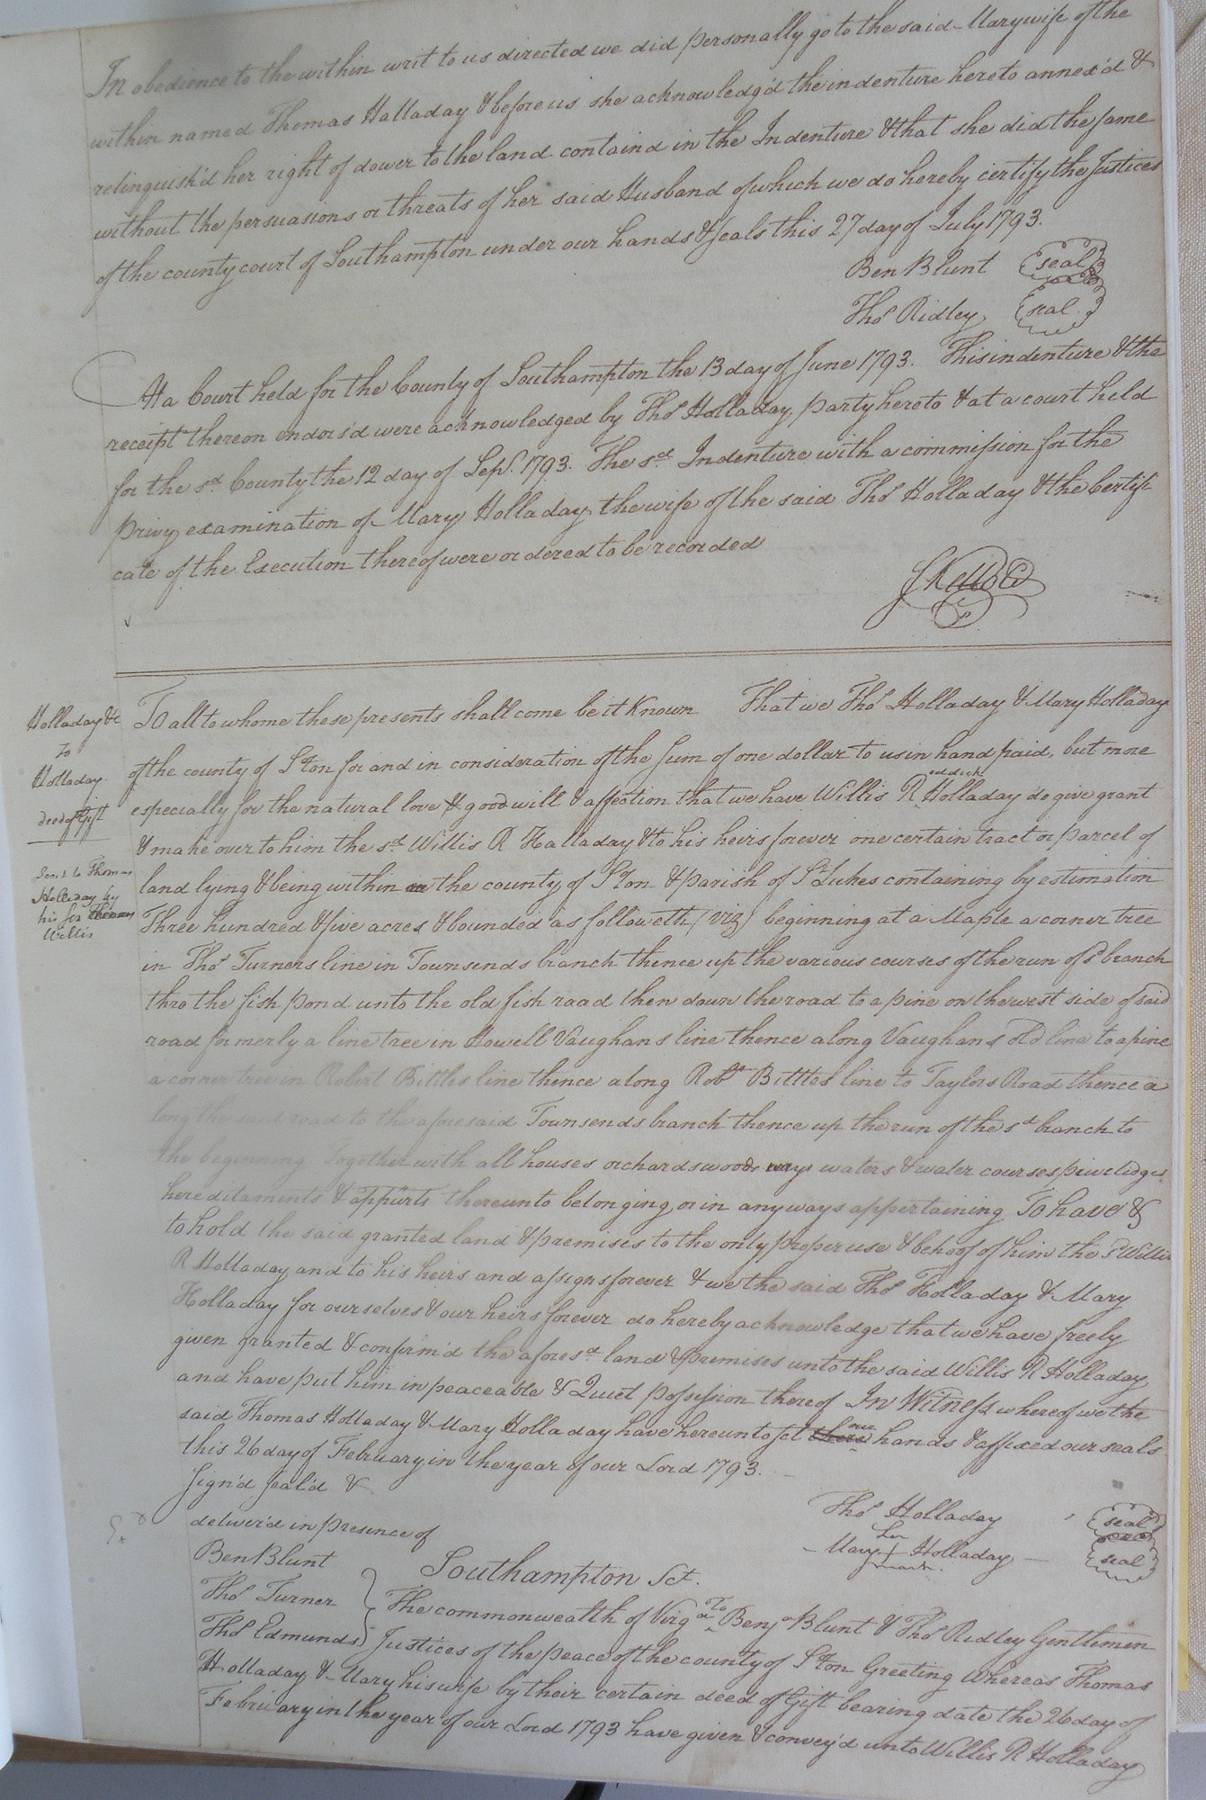 In obedience to the within writ to us directed we did personally go to the said Mary wife of the
within named Thomas Halladay & before us she acknowledg'd the indenture hereto annex'd &
relinquish'd her right of dower to the land containd in the Indenture & that she did the same
without the persuasions or threats of her said Husband of which we do hereby certify the Justices
of the county court of Southampton under our hands & seals this 27 day of July 1793.
Ben Blunt seal
Thos Ridley seal
At a Court held for the County of Southampton the 13 day of June 1793. This indenture & the
receipt thereon endors'd were acknowledged by Thos Holladay, party hereto & at a court held
for the sd County the 12 day of Sepr. 1793. The sd Indenture with a commission for the
privy examination of Mary Holladay the wife of the said Thos Holladay & the Certifi
cate of the Execution thereof were ordered to be recorded
Holladay &c
To
Holladay
deed of Gift
Sent to Thomas
Holladay by
his son
Willis
To all to whome these presents shall come be it Known That we Thos Holladay & Mary Holladay
of the county of S'ton for and in consideration of the sum of one dollar to us in hand paid, but more
especially for the natural love & good will & affection that we have Willis Reddick Holladay do give grant
& make over to him the sd Willis R Halladay & to his heirs forever one certain tract or parcel of
land lying & being within the county of S'ton & parish of St Lukes containing by estimation
Three hundred & five acres & bounded as followeth (viz) beginning at a Maple a corner tree
in Thos Turners line in Townsends branch thence up the various courses of the run of sd branch
thro the fish pond unto the old fish road then down the road to a pine on the west side of said
road formerly a line tree in Howell Vaughans line thence along Vaughans old line to a pine
a corner tree in Robert Bittles line thence along Robt Bittles line to Taylors Road thence a
long the said road to the aforesaid Townsends branch thence up the run of the sd branch to
the beginning together with all houses orchards woods ways waters & water courses priveledges
hereditaments & appurts thereunto belonging, or in any ways appertaining To have &
to hold the said granted land & premises to the only proper use & behoof of him the sd Willis
R Holladay and to his heirs and assigns forever & we the said Thos Holladay & Mary
Holladay for ourselves & our heirs forever do hereby acknowledge that we have freely
given granted & confirm'd the aforesd land & premises unto the said Willis R Holladay,
and have put him in peaceable & Quiet possession thereof In Witness whereof we the
said Thomas Holladay & Mary Holladay have hereunto set our hands & affixed our seals
this 26 day of February in the year of our Lord 1793.
Sign'd seal'd &
deliver'd in presence of
Thos Holladay seal
Mary her + mark Holladay seal
Ben Blunt
Thos Turner
Thos Edmunds
Southampton Sct.
The commonwealth of Virga To Benj Blunt & Thos Ridley Gentlemen
Justices of the peace of the county of S'ton Greeting Whereas Thomas
Holladay & Mary his wife by their certain deed of Gift bearing date the 26 day of
February in the year of our Lord 1793 have given & convey'd unto Willis R Holladay